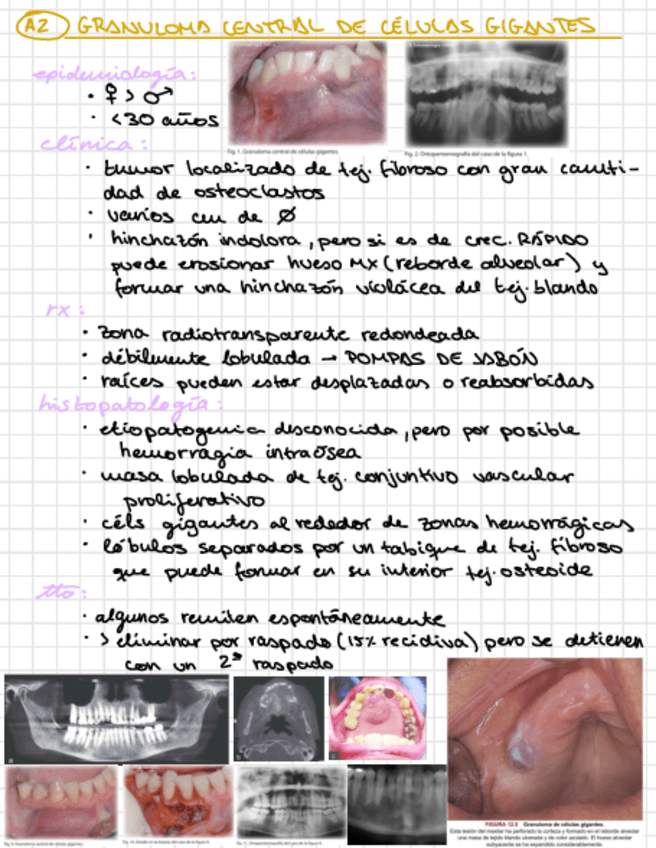 A2 GRANULOMA CENTRAL DE CÉLULAS GIGANTES
epidemiología:
· ♀ > ♂
· <30 años
Fig. 1. Granuloma central de células gigantes.
Fig. 2. Ortopantomografía del caso de la figura 1.
clínica:
· tumor localizado de tej. fibroso con gran canti-
dad de osteoclastos
· varios cm de Ø
· hinchazón indolora, pero si es de crec. RÁPIDO
puede erosionar hueso Mx (reborde alveolar) y
formar una hinchazón violácea del tej. blando
rx:
· zona radiotransparente redondeada
· débilmente lobulada → POMPAS DE JABÓN
· raíces pueden estar desplazadas o reabsorbidas
histopatología:
· etiopatogenia desconocida, pero por posible
hemorragia intraósea
· masa lobulada de tej. conjuntivo vascular
proliferativo
· céls gigantes al rededor de zonas hemorrágicas
· lóbulos separados por un tabique de tej. fibroso
que puede formar en su interior tej. osteoide
tto:
· algunos remiten espontáneamente
· > eliminar por raspado (15% recidiva) pero se detienen
con un 2º raspado
FIGURA 12.5 Granuloma de células gigantes.
Esta lesión del maxilar ha perforado la corteza y formado en el reborde alveolar
una masa de tejido blando ulcerada y de color azulado. El hueso alveolar
subyacente se ha expandido considerablemente.